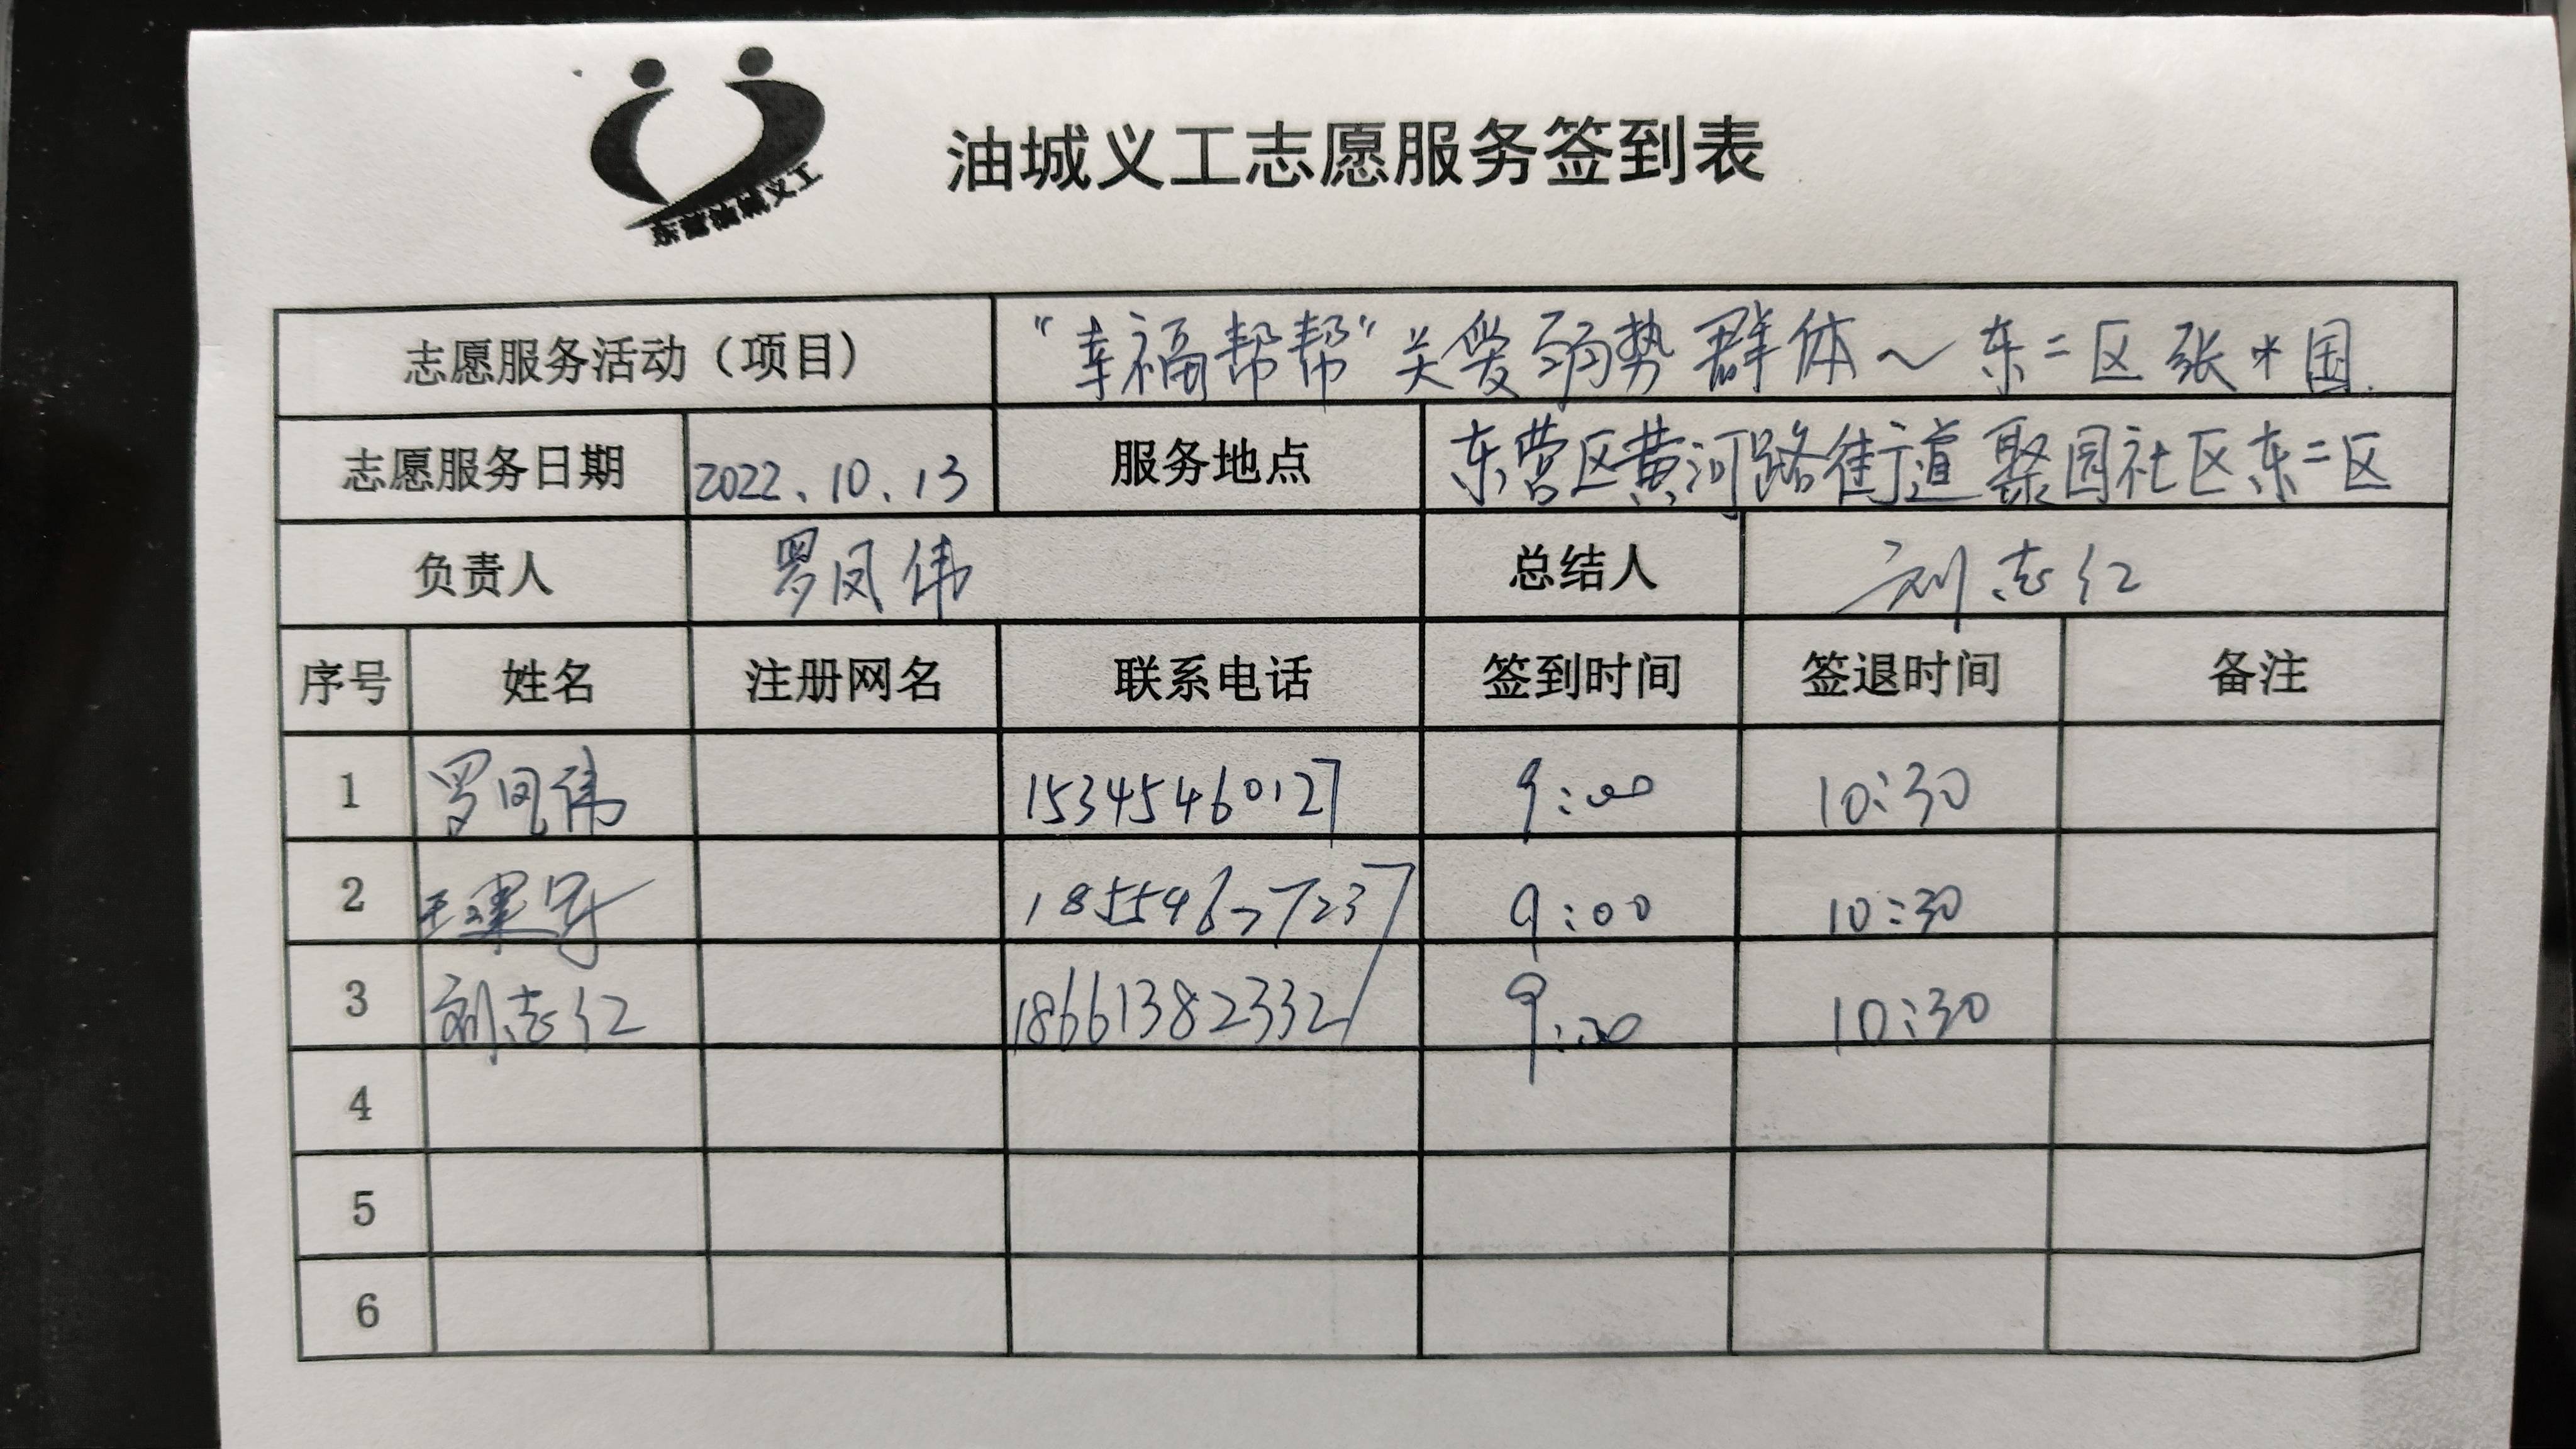 东营油城义工
油城义工志愿服务签到表
志愿服务活动（项目） “幸福帮帮”关爱弱势群体～东二区张*国
志愿服务日期 2022.10.13 服务地点 东营区黄河路街道聚园社区东二区
负责人 罗凤伟 总结人 刘志仁
序号 姓名 注册网名 联系电话 签到时间 签退时间 备注
1 罗凤伟 15345460127 9:00 10:30
2 18554677237 9:00 10:30
3 刘志仁 18661382332 10:30
4
5
6